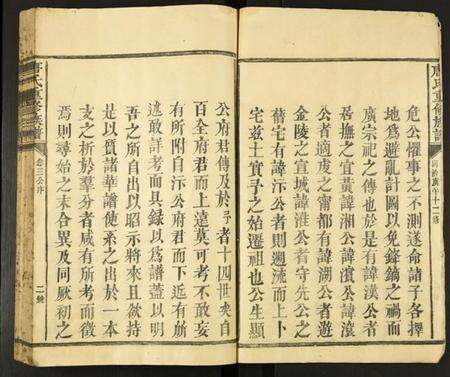 唐氏重修族譜
危公懼事之不測遂命諸子各擇
地爲避亂計圖以免鋒鏑之禍而
廣宗祀之傳也於是有諱漢公者
居撫之宜黃諱湘公諱濱公諱滾
公者適虔之甯都有諱湖公者遊
金陵之宣城諱淮公者守先公之
舊宅有諱汴公者則遡流而上卜
宅兹土實予之始遷祖也公生顯
公府君傳及於予者十四世矣自
百全府君而上遠莫可考不敢妄
有所附自汴公府君而下近有所
述敢詳考而具錄以爲譜蓋以明
吾之所自出以昭示將來且欲持
是以質諸華譜使系之出於一本
支之析於羣分者咸有所考而徵
焉則尋始之未合異及同厥初之
唐氏重修族譜
卷三公序
二